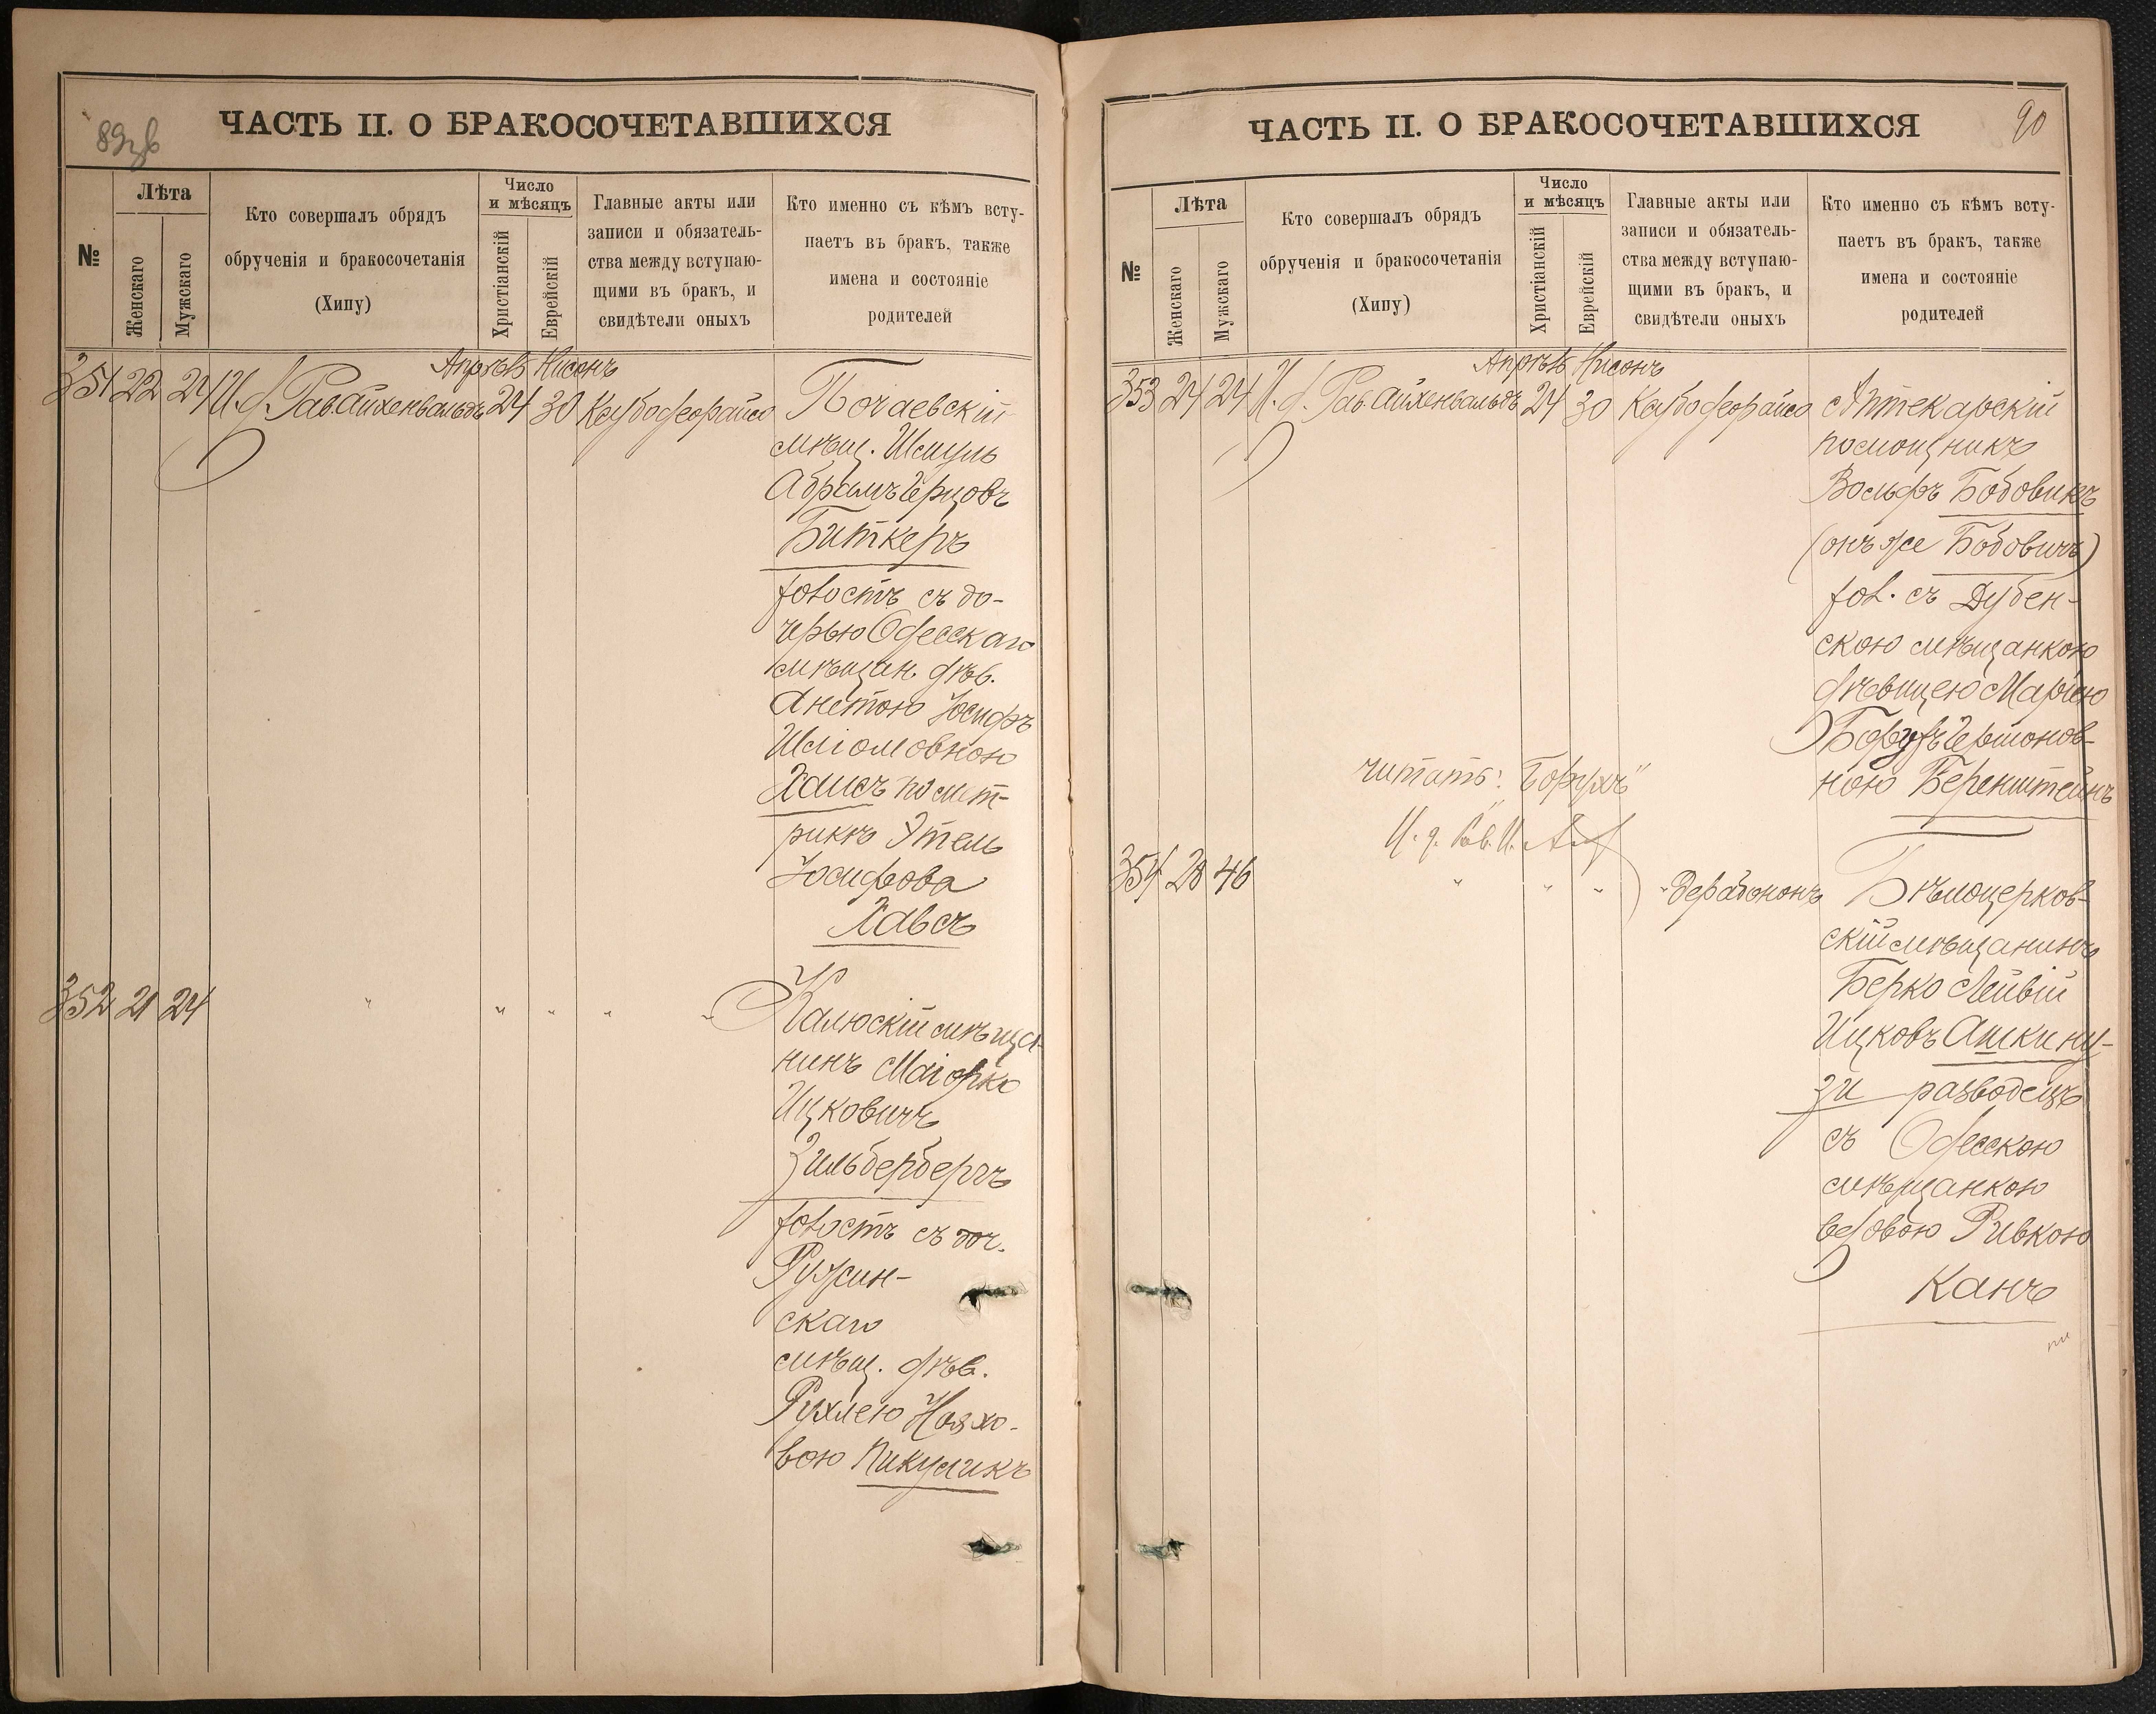 89зв
ЧАСТЬ II. О БРАКОСОЧЕТАВШИХСЯ
№
Лѣта
Женскаго
Мужскаго
Кто совершалъ обрядъ
обрученія и бракосочетанія
(Хипу)
Число
и мѣсяцъ
Христіанскій
Еврейскій
Главные акты или
записи и обязатель-
ства между вступаю-
щими въ бракъ, и
свидѣтели оныхъ
Кто именно съ кѣмъ всту-
паетъ въ бракъ, также
имена и состояніе
родителей
Апрѣль Нисонъ
351 22 24 И. д. Рав. Айхенвальдъ 24 30 Каубодеорайсо Почаевскій
мѣщ. Шмуль
Абрамъ Герцовъ
Биткеръ
холостъ съ до-
черью Одесскаго
мѣщан. дѣв.
Анетою Іосифъ
Шліомовною
Хаисъ по мет-
рикѣ Этель
Іосифова
Хавсъ
352 21 24 " " " " " Калюскій мѣща-
нинъ Маіорко
Ицковичъ
Зильбербергъ
холостъ съ доч.
Ружин-
скаго
мѣщ. дѣв.
Рухлею Нохо-
вою Пикуликъ
90
ЧАСТЬ II. О БРАКОСОЧЕТАВШИХСЯ
№
Лѣта
Женскаго
Мужскаго
Кто совершалъ обрядъ
обрученія и бракосочетанія
(Хипу)
Число
и мѣсяцъ
Христіанскій
Еврейскій
Главные акты или
записи и обязатель-
ства между вступаю-
щими въ бракъ, и
свидѣтели оныхъ
Кто именно съ кѣмъ всту-
паетъ въ бракъ, также
имена и состояніе
родителей
Апрѣль Нисонъ
353 24 24 И. д. Рав. Айхенвальдъ 24 30 Каубодеорайсо Аптекарскій
помощникъ
Вольфъ Бобовикъ
(онъ же Бобовичъ)
хол. съ Дубен-
скою мѣщанкою
дѣвицею Маріею
Борухъ Гершонов-
ною Беренштейнъ
читать: "Борухъ"
И. д. Рав. И.
354 28 46 " " " " Дерабононъ Бѣлоцерков-
скій мѣщанинъ
Берко Лейвій
Ицковъ Ашкину-
зи разводецъ
съ Одесскою
мѣщанкою
вдовою Ривкою
Канъ